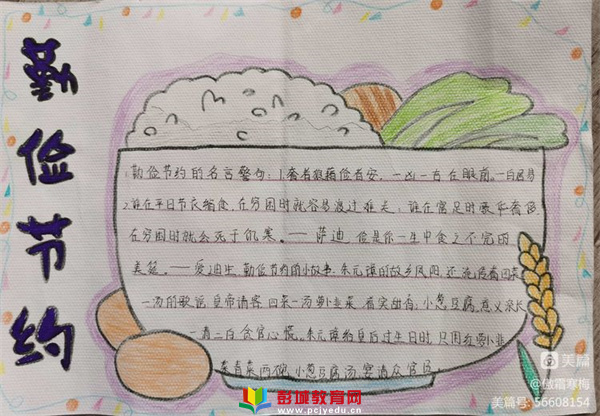 勤俭节约
1.勤俭节约的名言警句:1.奢者狼藉俭者安,一凶一吉在眼前。—白居易
2.谁在平日节衣缩食,在穷困时就容易渡过难关;谁在富足时豪华奢侈,
在穷困时就会死于饥寒。——萨迪 俭是你一生中食之不完的
美筵。——爱迪生 勤俭节约的小故事:朱元璋的故乡凤阳,还流传着四菜
一汤的歌谣:皇帝请客,四菜一汤,萝卜韭菜,着实甜香;小葱豆腐,意义深长,
一清二白,贪官心慌。朱元璋给皇后过生日时,只用红萝卜、韭
菜、青菜两碗,小葱豆腐汤,宴请众官臣
彭城教育网
www.pcjyedu.cn
美篇
@傲霜寒梅
美篇号:56608154